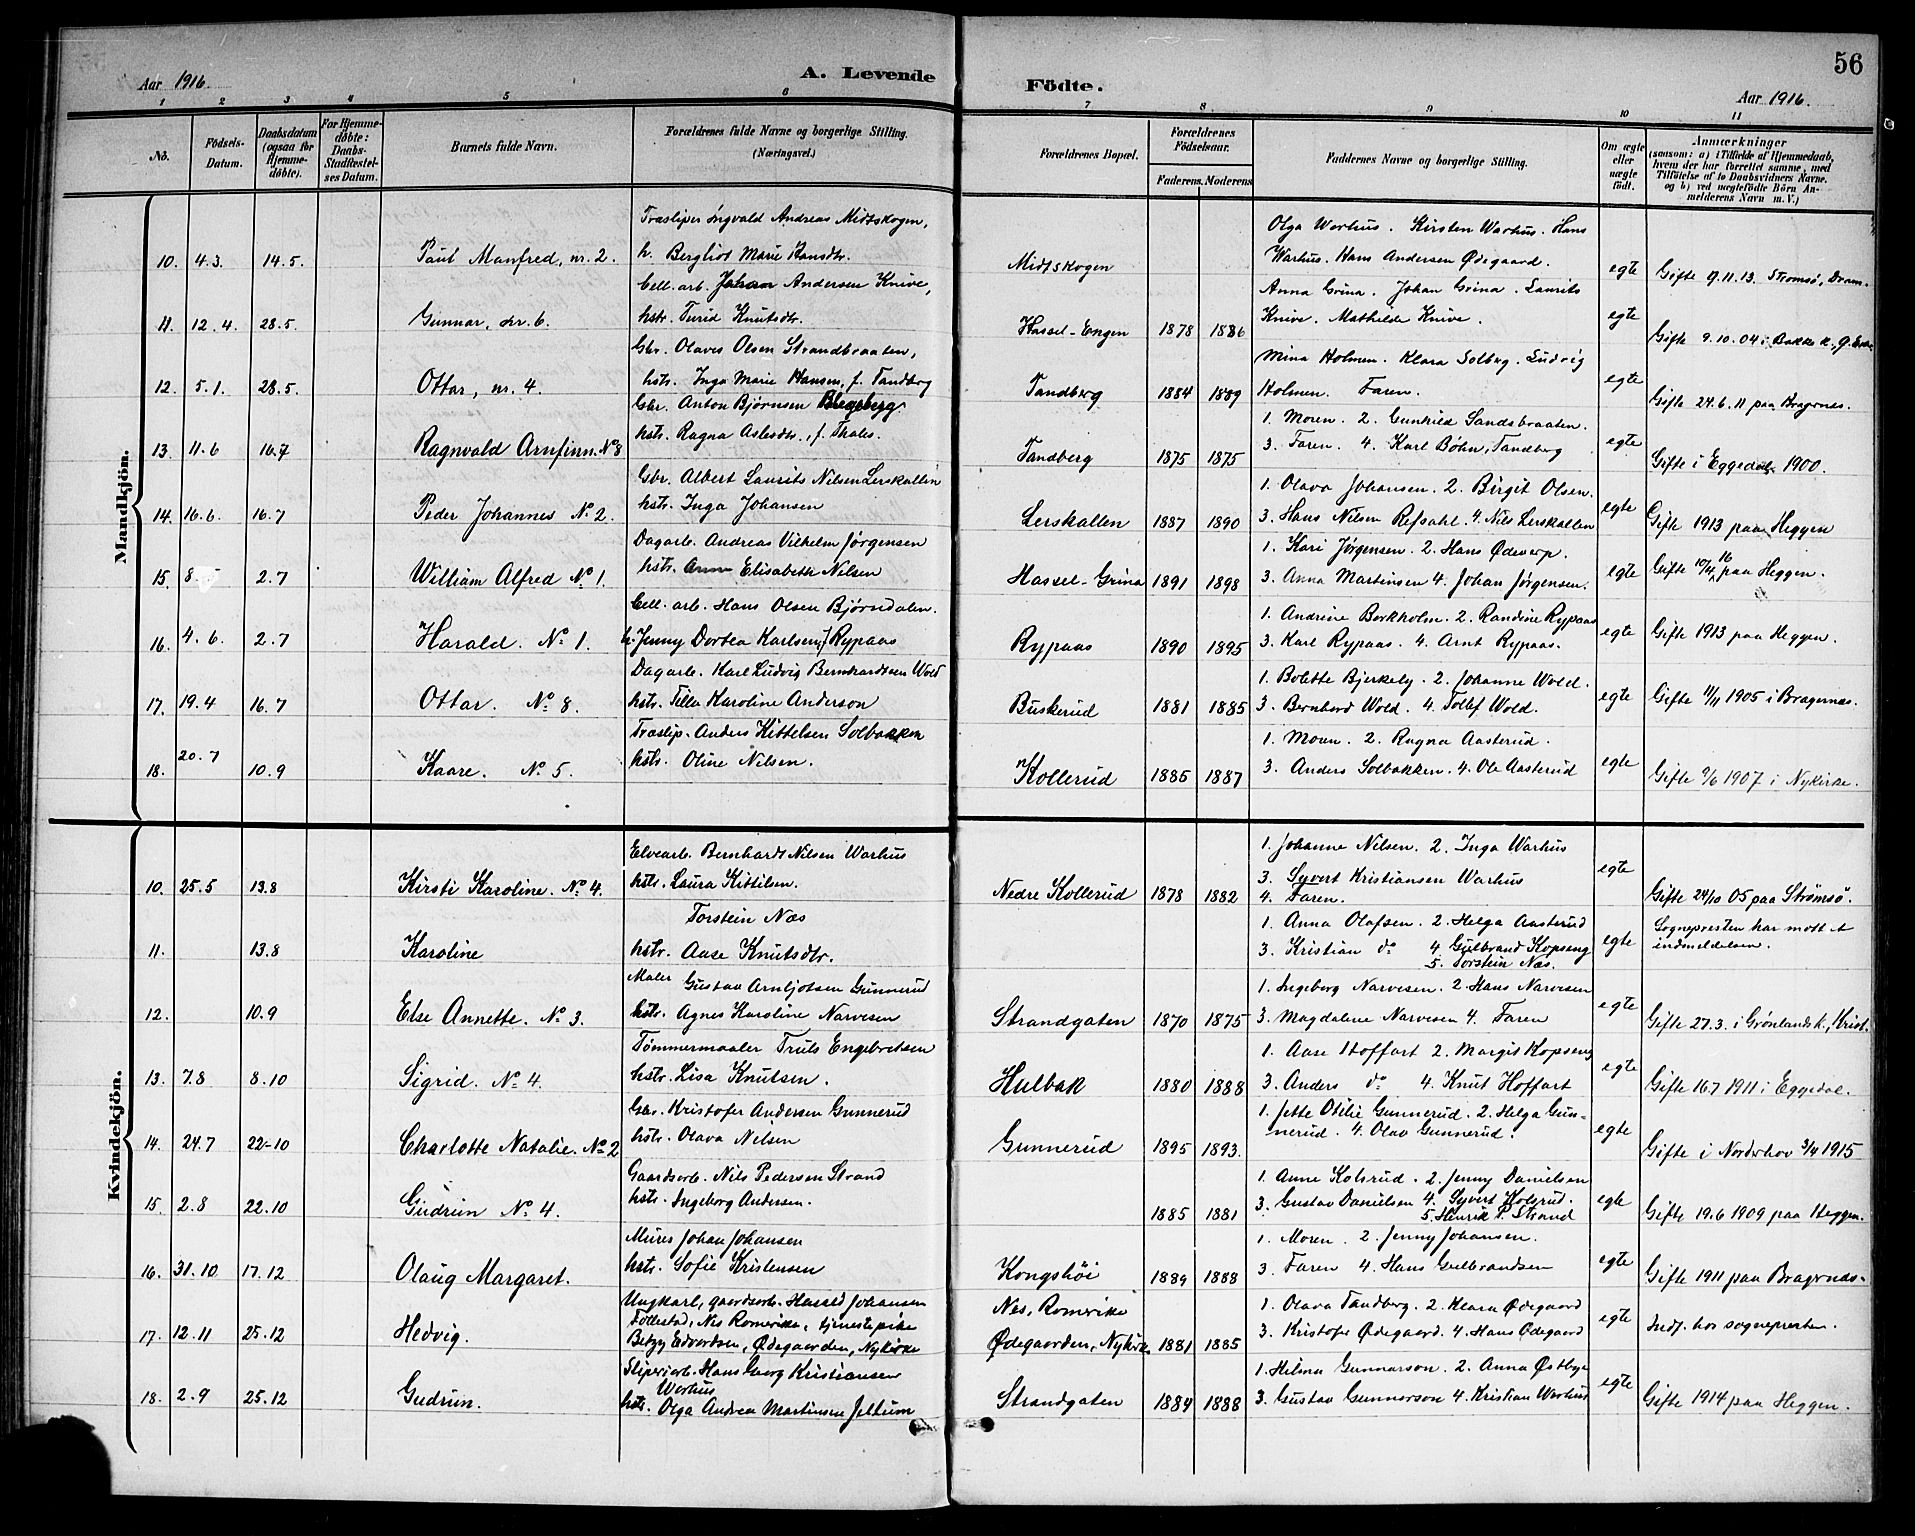 56
Aar 1916.
A. Levende
Födte.
Aar 1916.
1 2 3 4 5 6 7 8 9 10 11
No.
Födsels-Datum.
Daabsdatum (ogsaa for Hjemmedöbte).
For Hjemmedöbte: Daabs-Stadfæstelses Datum.
Barnets fulde Navn.
Forældrenes fulde Navne og borgerlige Stilling. (Næringsvei.)
Forældrenes Bopæl.
Forældrenes Födselsaar.
Faderens. Moderens
Faddernes Navne og borgerlige Stilling.
Om ægte eller uægte födt.
Anmærkninger
(saasom: a) i Tilfælde af Hjemmedaab, hvem der har forrettet samme, med Tilföielse af to Daabsvidners Navne, og b) ved uægtefödte Börn Anmelderens Navn m. V.)
Mandkjön.
Træsliper Ingvald Andreas Midtskogen, Olga Warhus. Kirsten Warhus. Hans
10. 4.3. 14.5. Paul Manfred, nr. 2. h. Bergliot Marie Hansdtr. Midtskogen Warhus. Hans Andersen Ødegaard. egte Gifte 9.11.13. Strømsø, Dram.
Cell. arb. Johan Andersen Knive, Anna Grina. Johan Grina. Laurits
11. 12.4. 28.5. Gunnar, nr. 6. hstr. Turid Knutsdtr. Hassel-Engen 1878 1886 Knive. Mathilde Knive. egte Gifte 9.10.04 i Bakke k.
Gbr. Olaves Olsen Strandbraaten, Mina Holmen. Klara Solberg. Ludvig
12. 5.1. 28.5. Ottar, nr. 4. hstr. Inga Marie Hansen, f. Tandberg Tandberg 1884 1889 Holmen. Faren. egte Gifte 24.6.11 paa Bragernæs.
Gbr. Anton Bjørnsen 1. Moren. 2. Gunhild Sandsbraaten.
13. 11.6 16.7 Ragnvald Arnfinn. No 8 hstr. Ragna Aslesdtr., f. Thales. Tandberg 1875 1875 3. Faren. 4. Karl Bøhn, Tandberg egte Gifte i Eggedal 1900.
Gbr. Albert Laurits Nilsen Lerskallen 1. Olava Johansen. 2. Birgit Olsen.
14. 16.6. 16.7 Peder Johannes No 2. hstr. Inga Johansen Lerskallen 1887 1890 3. Hans Nilsen Refsahl. 4. Nils Lerskallen egte Gifte 1913 paa Heggen
Dagarb. Andreas Vilhelm Jørgensen 1. Kari Jørgensen. 2. Hans Ødeverp.
15. 8. 2.7 William Alfred No 1. hstr. Anna Elisabeth Nilsen Hassel-Grina 1891 1898 3. Anna Martinsen 4. Johan Jørgensen. egte Gifte 10/4 16 paa Heggen.
Cell. arb. Hans Olsen Bjørndalen. 1. Andrine Borkholm. 2. Randine Rypaas
16. 4.6. 2.7 Harald. No 1. h. Jenny Dortea Karlsen, f. Rypaas Rypaas 1890 1895 3. Karl Rypaas. 4. Arnt Rypaas. egte Gifte 1913 paa Heggen.
Dagarb. Karl Ludvig Bernhardtsen Wold 1. Bolette Bjerkely. 2. Johanne Wold.
17. 19.4 16.7 Ottar. No 8. hstr. Tilla Karoline Anderson Buskerud 1881 1885 3. Bernhard Wold. 4. Tollef Wold. egte Gifte 11/11 1905 i Bragernæs.
Træslip. Anders Kittelsen Solbakken 1. Moren. 2. Ragna Aasterud.
18. 20.7 10.9 Kaare. No 5. hstr. Oline Nilsen. Kollerud 1885 1887 3. Anders Solbakken. 4. Ole Aasterud egte Gifte 9/6 1907 i Nykirke.
Kvindekjön.
Elvearb. Bernhardt Nilsen Warhus 1. Johanne Nilsen. 2. Inga Warhus
10. 25.5 13.8 Kirsti Karoline. No 4. hstr. Laura Kittilsen. Nedre Kollerud 1878 1882 3. Syvert Kristiansen Warhus egte Gifte 24/10 05 paa Strømsø.
4. Faren.
Torstein Næs 1. Anna Olafsen. 2. Helga Aasterud
11. 13.8 Karoline hstr. Aase Knutsdtr. 3. Kristian do 4 Gulbrand Kopseng egte Sognepresten har mott et indmeldelsen.
5. Torstein Næs.
Maler Gustav Arnljotsen Gunnerud 1. Ingeborg Narvesen. 2. Hans Narvesen
12. 10.9 Else Annette. No 3. hstr. Agnes Karoline Narvesen Strandgaten 1870 1875 3. Magdalene Narvesen 4. Faren egte Gifte 27.3. i Grønlands k., Krist.
Tømmermaaler Truls Engebretsen 1. Aase Hoffart 2. Margit Kopseng
13. 7.8 8.10 Sigrid. No 4. hstr. Lisa Knutsen. Hulbak 1880 1888 3. Anders do 4. Knut Hoffart egte Gifte 16.7 1911 i Eggedal.
Gbr. Kristofer Andersen Gunnerud 1. Jette Otilie Gunnerud. 2. Helga Gun-
14. 24.7 22-10 Charlotte Natalie. No 2 hstr. Olava Nilsen Gunnerud 1895 1893. nerud. 4. Olav Gunnerud. egte Gifte i Norderhov 3/4 1915
Gaardsarb. Nils Pedersen Strand 1. Anne Kolsrud. 2. Jenny Danielsen
15. 2.8 22.10 Gudrun No 4. hstr. Ingeborg Andersen. 1885 1881 3. Gustav Danielsen 4. Syvert Kolsrud. egte Gifte 19.6 1909 paa Heggen.
5. Henrik P. Strand
Murer Johan Johansen 1. Moren. 2. Jenny Johansen.
16. 31.10 17.12 Olaug Margaret. hstr. Sofie Kristensen Kongshöi 1889 1888 3. Faren 4. Hans Gulbrandsen egte Gifte 1911 paa Bragernæs.
Ungkarl, gaardsarb. Johansen Nes, Romerike 1. Olava Tandberg. 2. Klara Ødegaard
17. 12.11 25.12 Hedvig. Tollestad, Nes Romerike, tjenestepike Betzy Edvardsen, Ødegaarden, Nykirke Ødegaarden, Nykirke 1881 1885 3. Kristofer Ødegaard. 4. Hans Ødegaard egte Indf. hos sognepresten.
Sliperiarb. Hans Georg Kristiansen Warhus 1. Helma Gunnarson. 2. Anna Østbye
18. 2.9 25.12 Gudrun. hstr. Olga Andrea Martinsen Jellum Strandgaten 1884 1888 3. Gustav Gunnerson 4. Kristian Warhus egte Gifte 1914 paa Heggen.